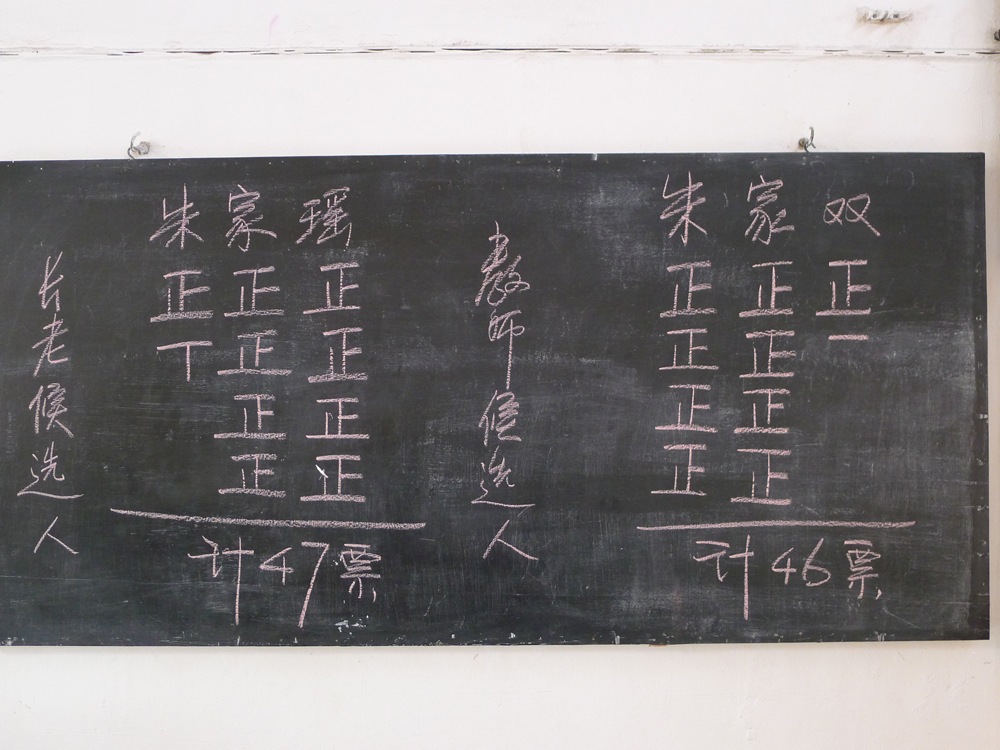 长老候选人
朱家瑶
正正正
丅正正
正正
正正
计47票
教师候选人
朱家双
正正正
正正一
正正
正正
计46票